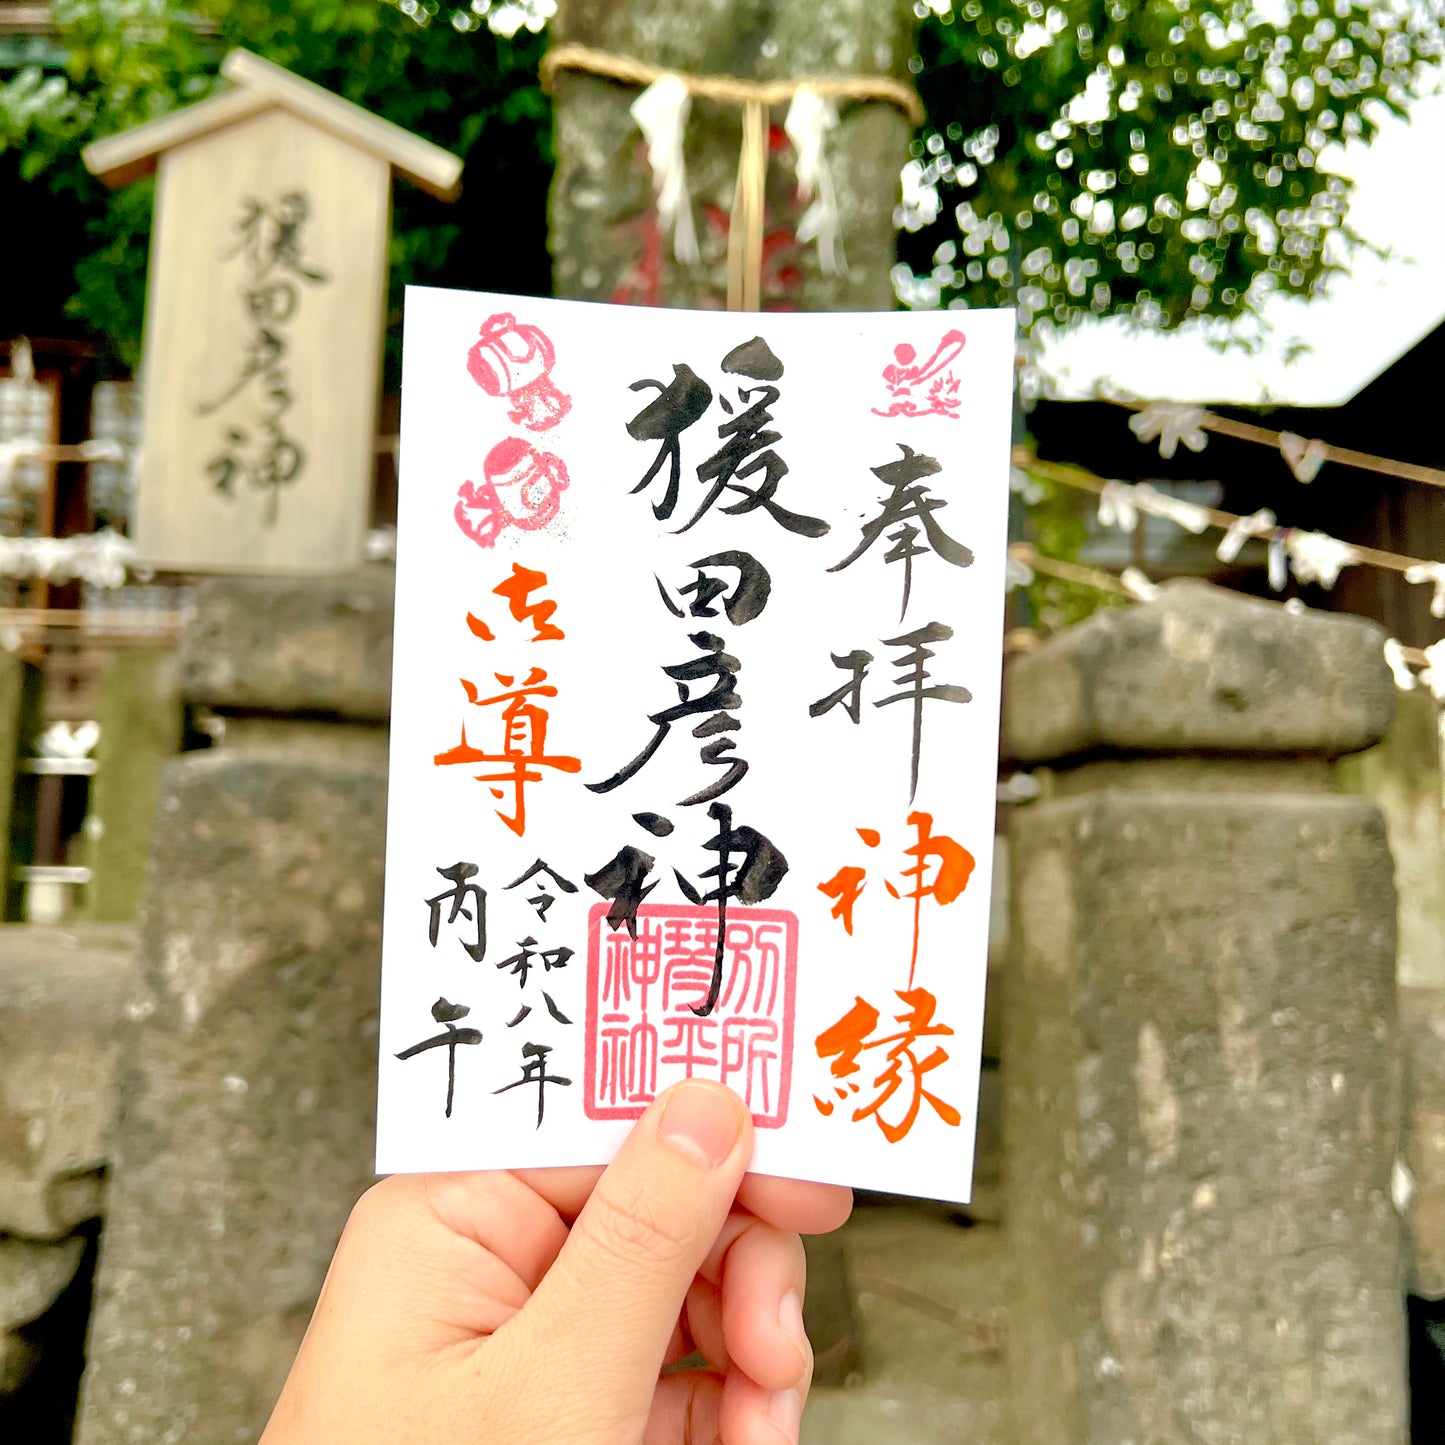 猨田彦神
奉拝
神縁
猨田彦神
別所
琴平
神社
御導
令和八年
丙午